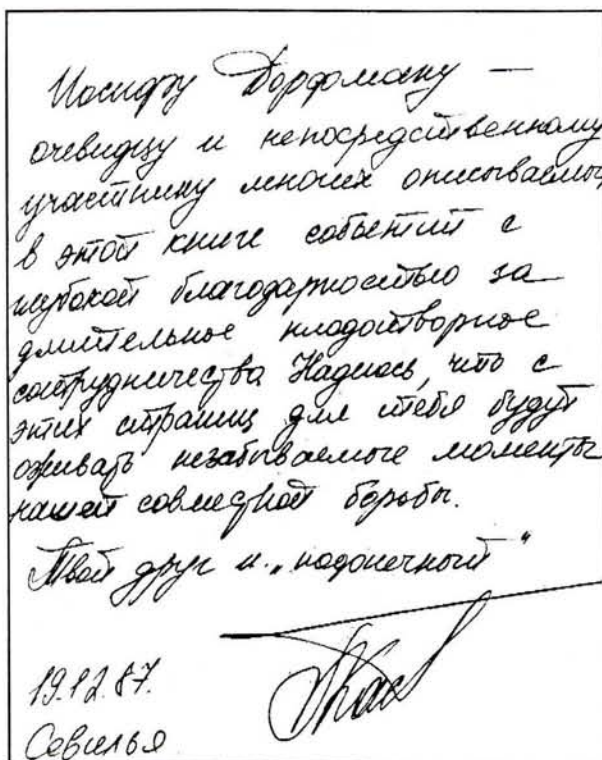 Иосифу Дорфману —
очевидцу и непосредственному
участнику многих описываемых
в этой книге событий с
глубокой благодарностью за
длительное плодотворное
сотрудничества Надеюсь, что с
этих страниц для тебя будут
оживать незабываемые моменты
нашей совместной борьбы.
Твой друг и „подопечный“
19.12.87.
Севилья